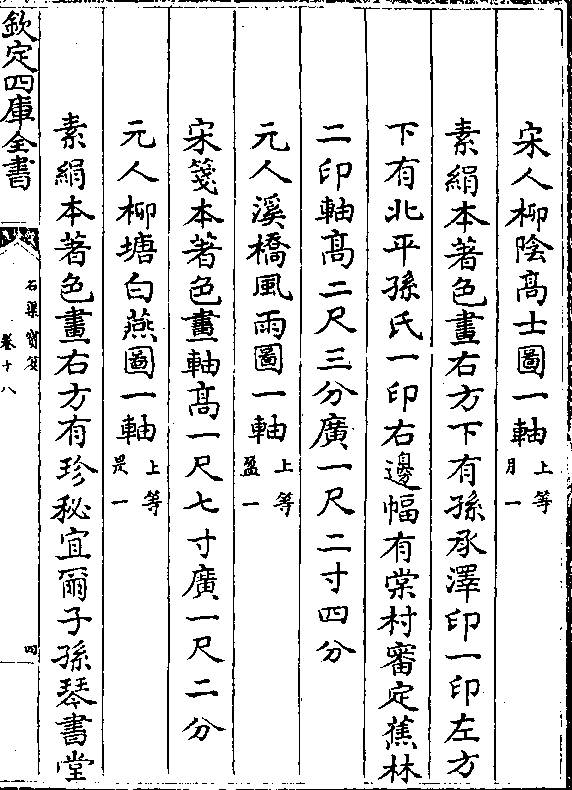 宋人柳隂髙士圖一軸上等月一
素絹本著色畫右方下有孫承澤印一印左方
下有北平孫氏一印右邊幅有棠村審定蕉林
二印軸髙二尺三分廣一尺二寸四分
元人溪橋風雨圖一軸上等盈一
宋箋本著色畫軸髙一尺七寸廣一尺二分
元人柳塘白燕圖一軸上等昃一
素絹本著色畫右方有珍秘宜爾子孫琴書堂
欽定四庫全書
石渠寶笈
卷十八
四